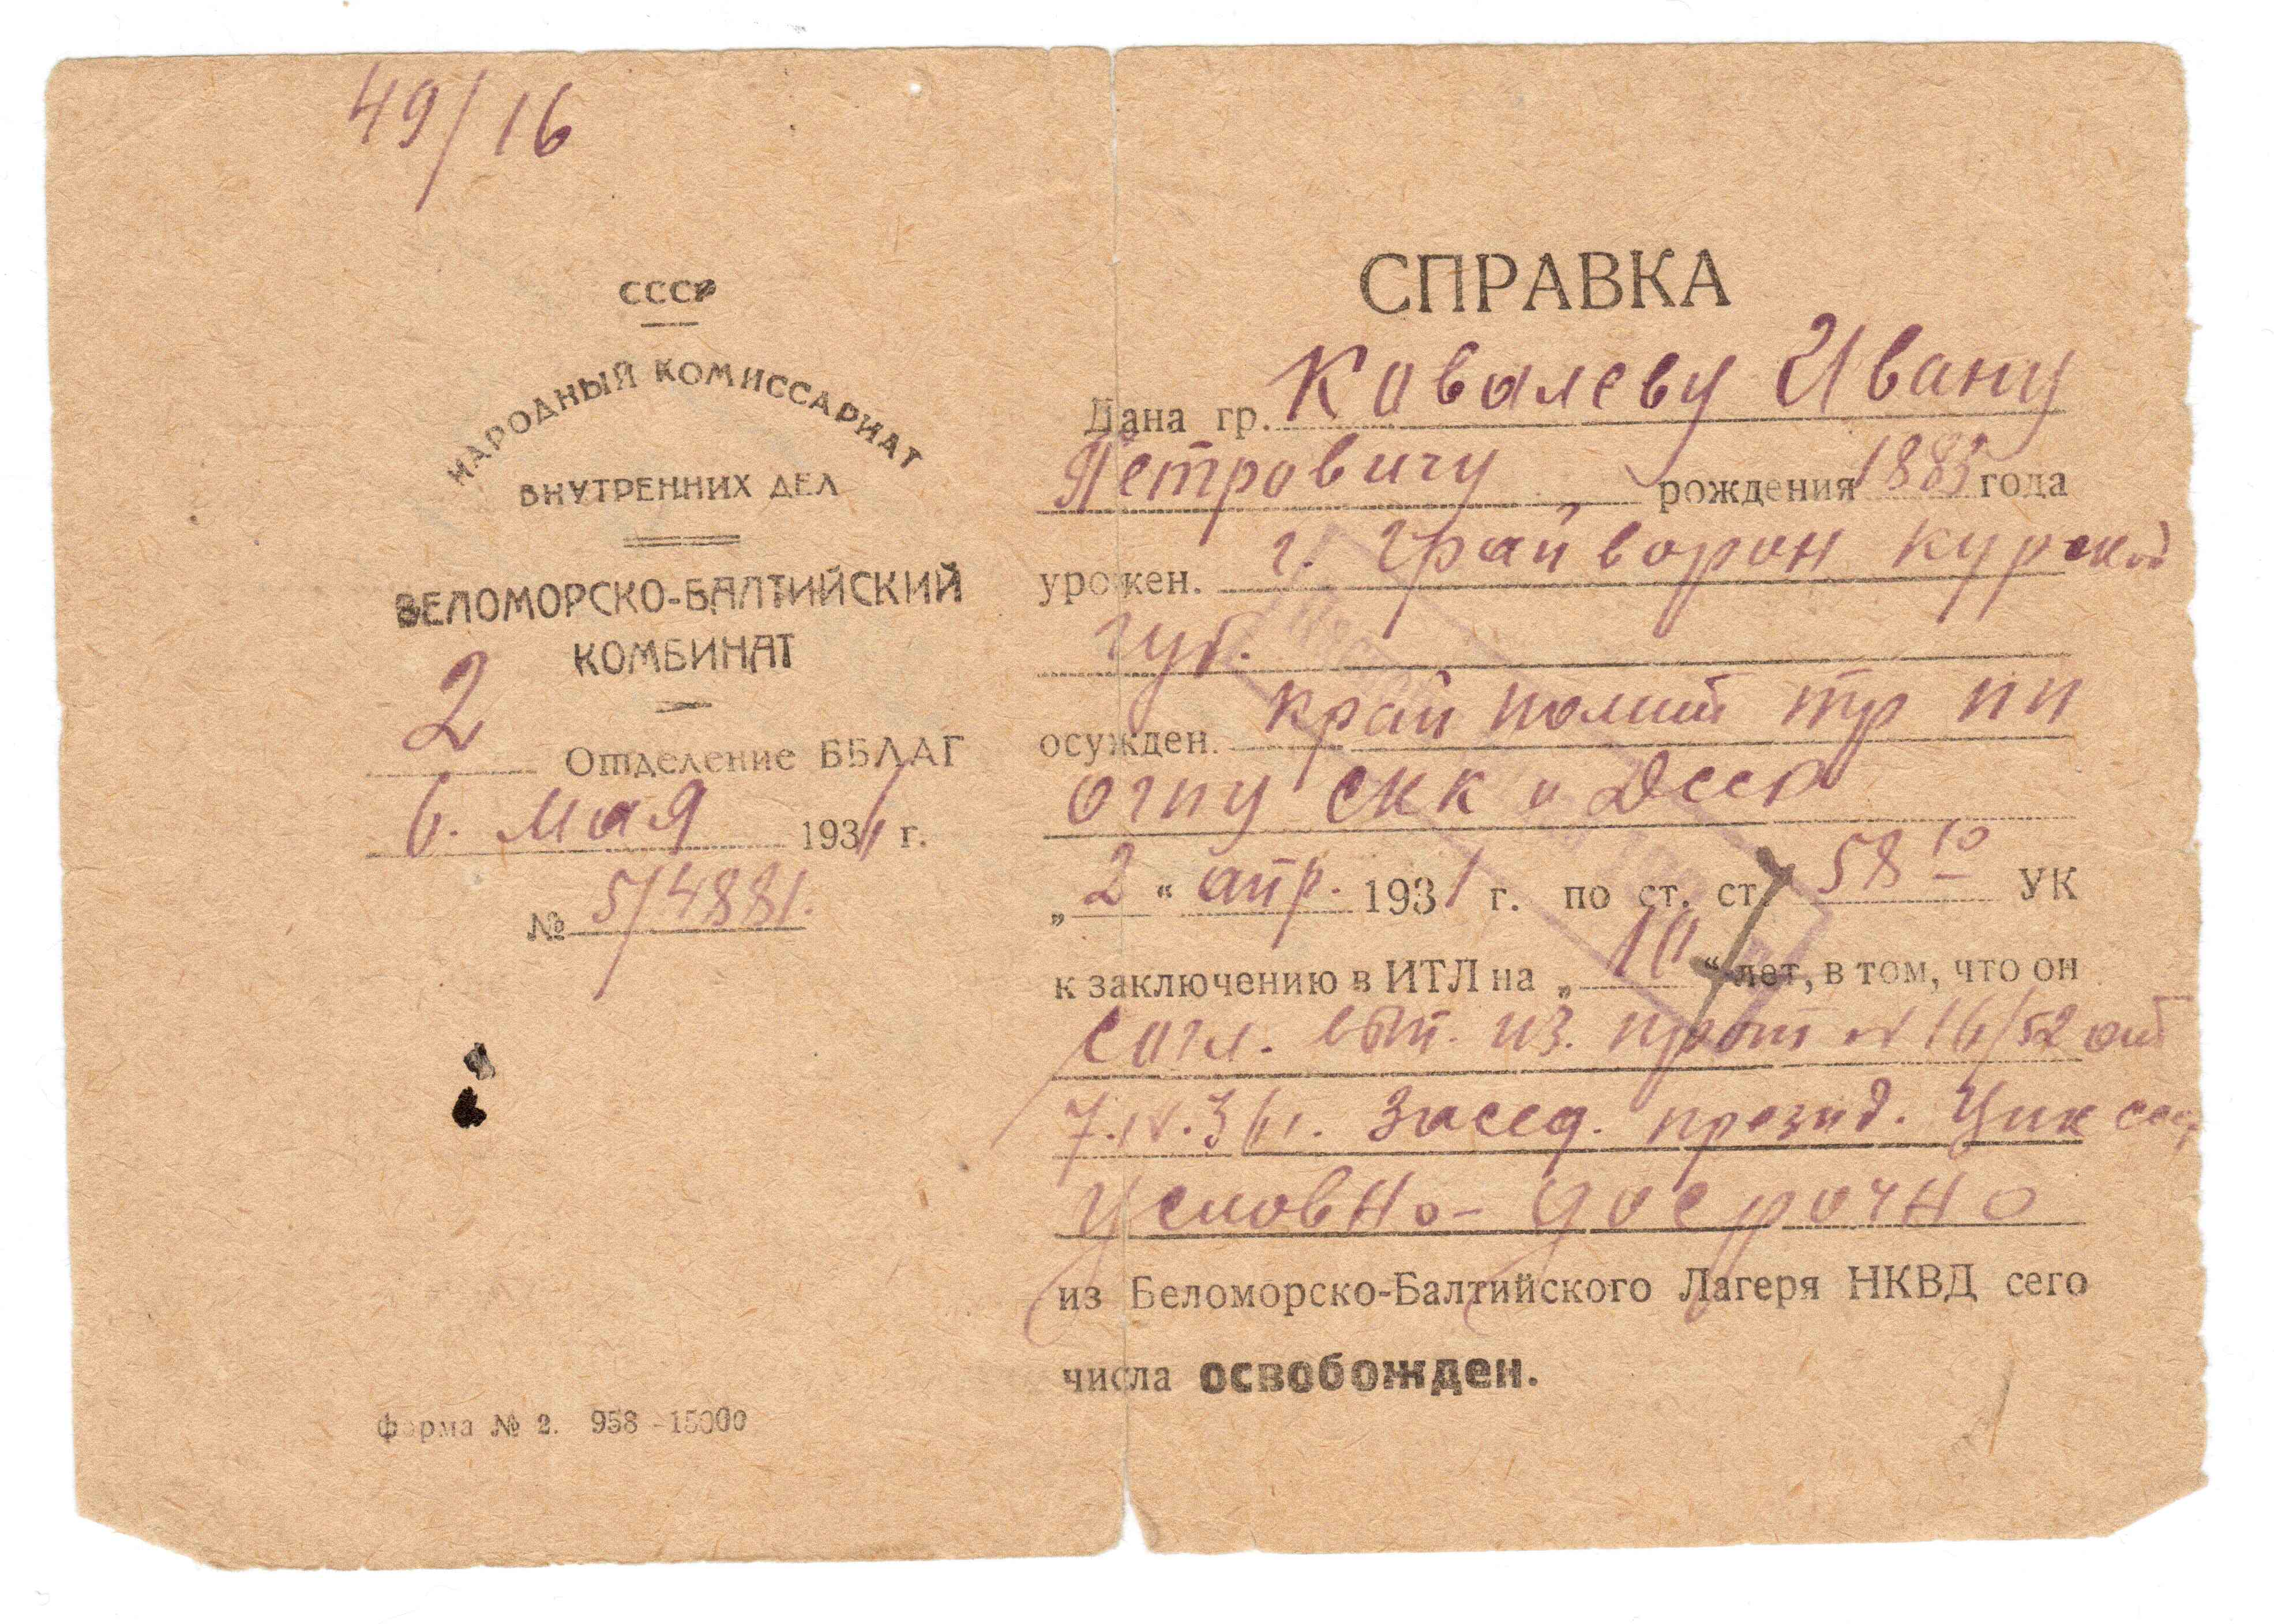 49/16
СССР
НАРОДНЫЙ КОМИССАРИАТ
ВНУТРЕННИХ ДЕЛ
БЕЛОМОРСКО-БАЛТИЙСКИЙ
КОМБИНАТ
2 Отделение ББЛАГ
6. мая 193 г.
№ 5/4881.
Форма № 2. 958-15000
СПРАВКА
Дана гр. Ковалеву Ивану
Петровичу рождения 1885 года
урожен. г. Грайворон Курской
губ.
осужден. край тр пп
огпу СКК и ДССР
„2“ апр. 1931 г. по ст. ст. 58 10 УК
к заключению в ИТЛ на „10“ лет, в том, что он
согл. вып. из. прот N 16/52 от
7.IV.3 засед. презид. Цик ссср
Условно-досрочно
из Беломорско-Балтийского Лагеря НКВД сего
числа освобожден.